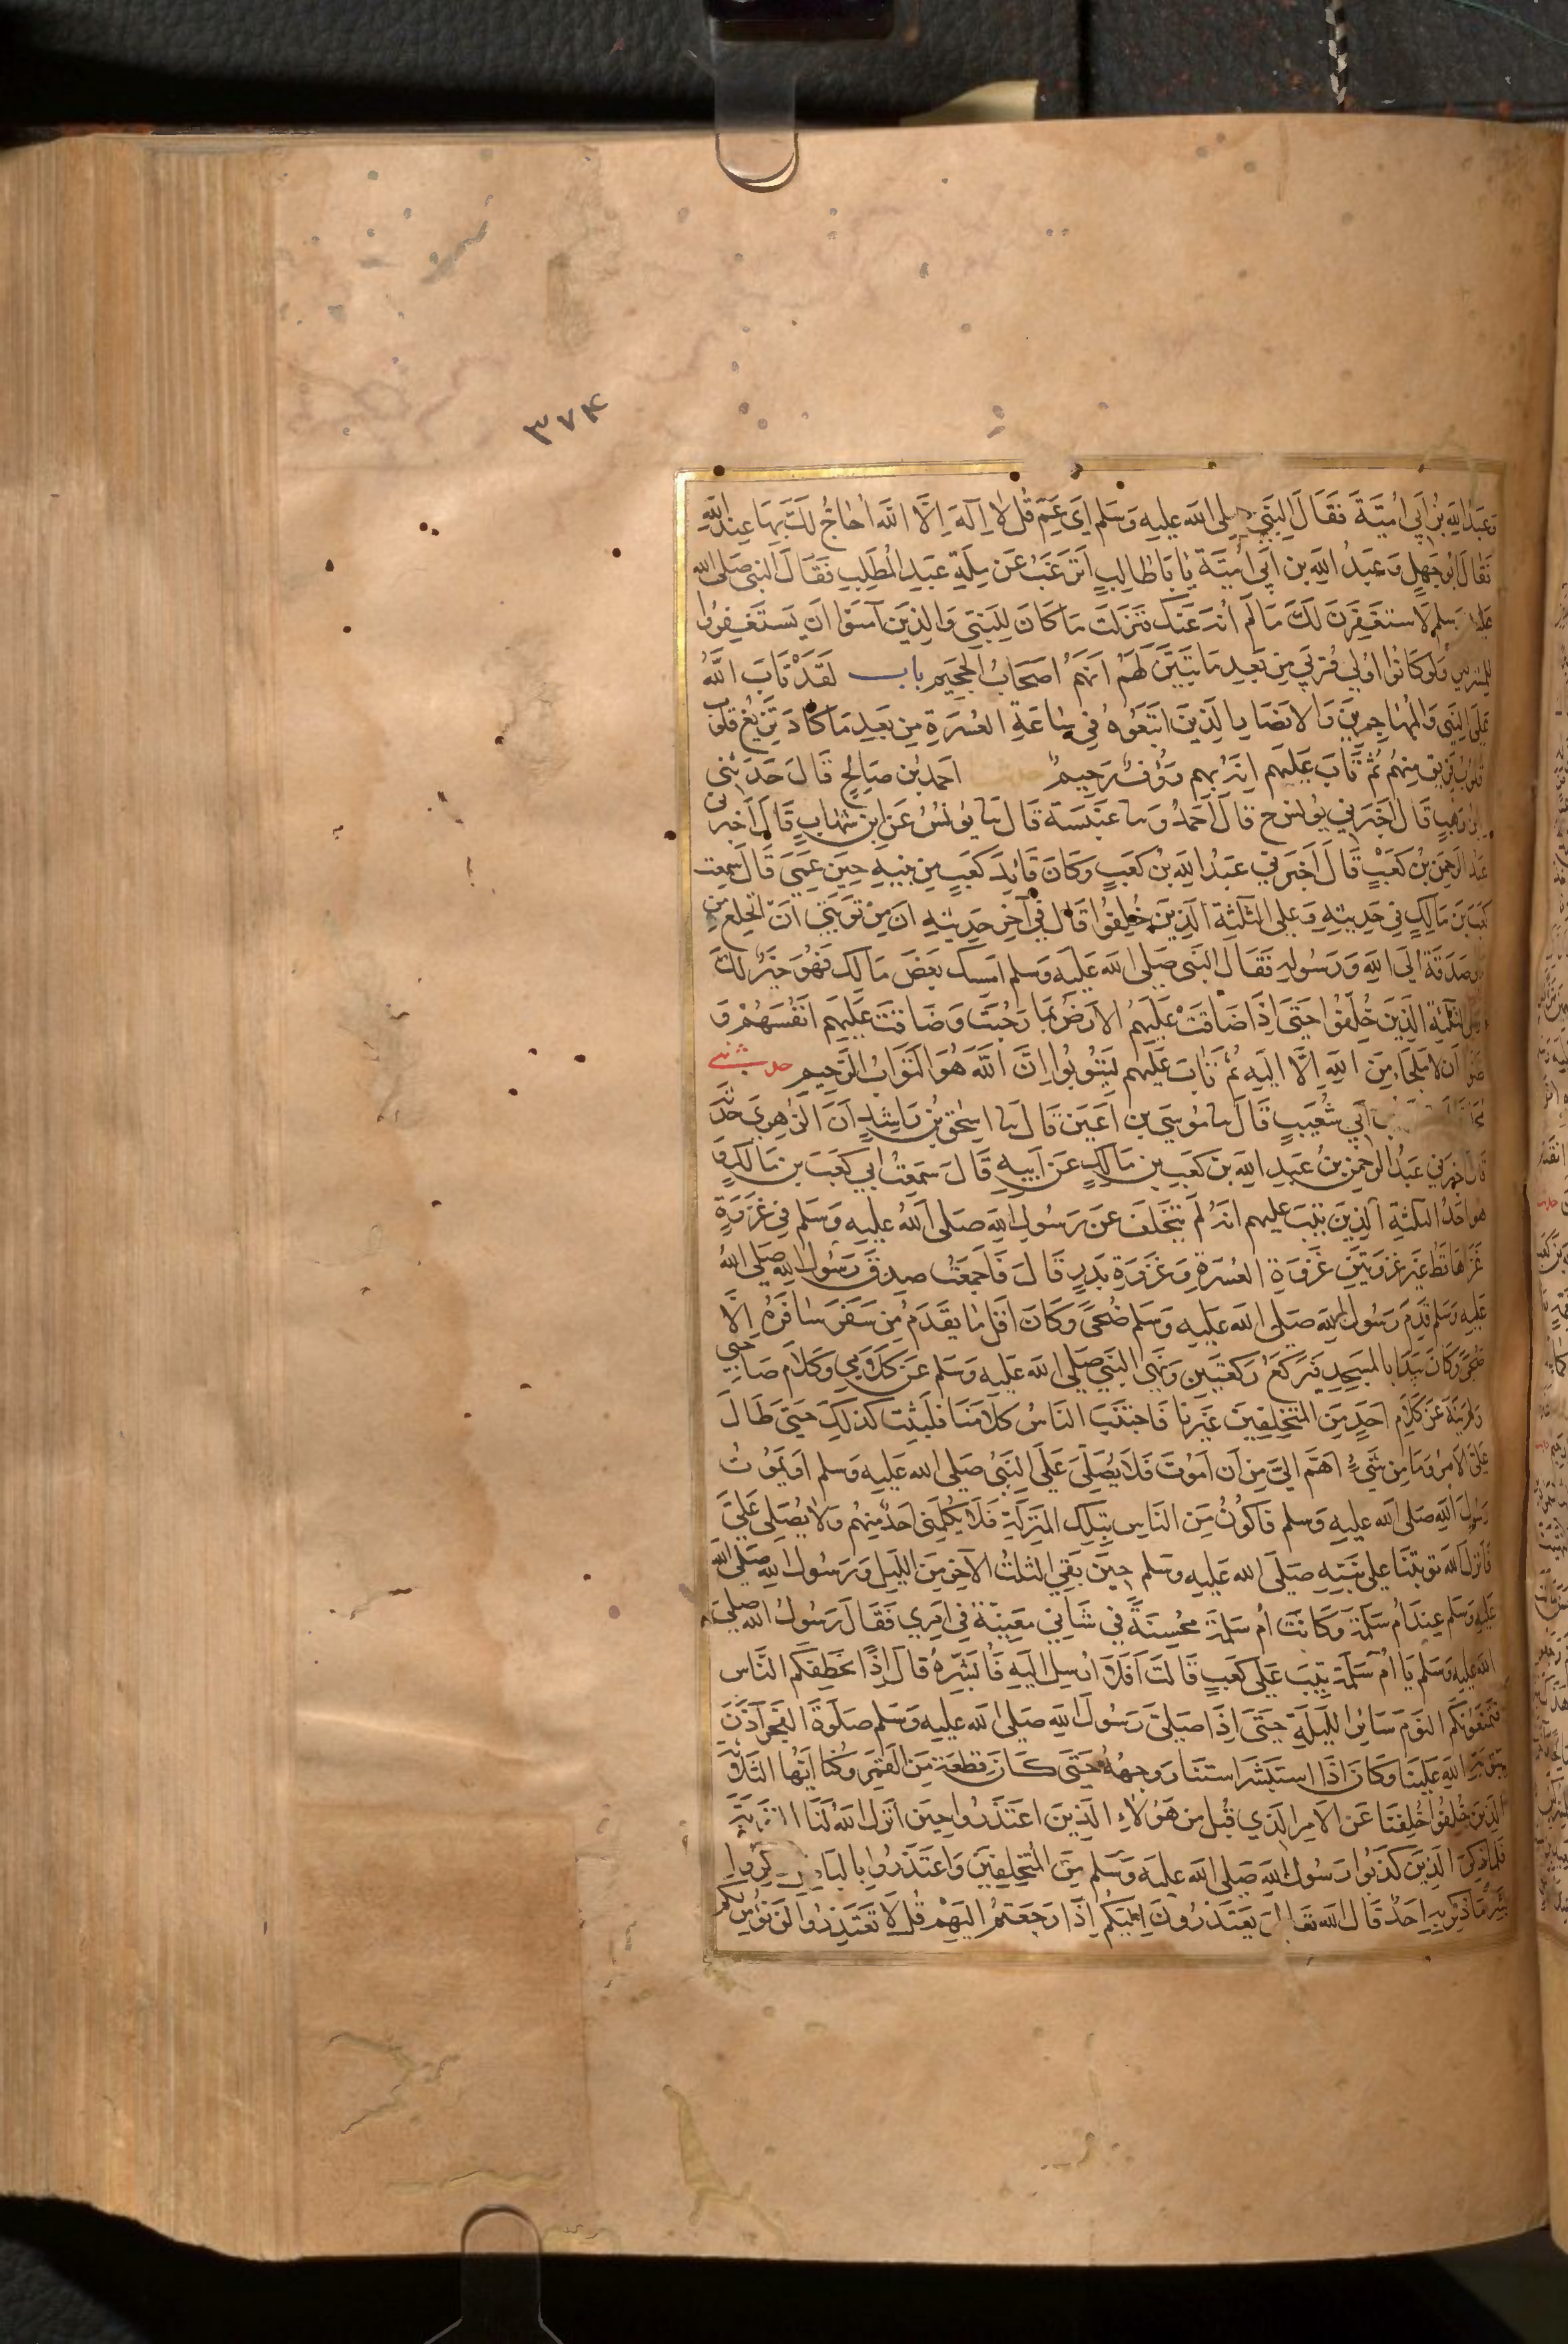 ۳۷۴
وَعَبْدُ اللهِ بْنُ اَبِي اُمَيَّةَ فَقَالَ النَّبِيُّ صلى الله عليه وَسَلم اَى عَمِّ قُل لا اِلَهَ اِلَّا اللَّه اُحَاجُّ لَكَ بِهَا عِندَ اللهِ
فَقَالَ اَبُو جَهْلٍ وَعَبْدُ اللَّهِ بن اَبِي اُمَيَّةَ يَا بَا طَالِبٍ اَتَرْغَبُ عَنْ مِلَّةِ عَبدِ المُطَّلِبِ فَقَالَ النبي صَلى الله
عليه وسلم لَاستَغفِرَنَّ لَكَ مَا لَم اُنْهَ عَنكَ فَنَزَلَت مَا كَانَ لِلنَبِي وَالذِينَ آمَنُوا اَنْ يَستَغفِرُوا
للمشركين وَلَو كَانُوا اولِي قُربَي مِن بَعدِ مَا تَبَيَّنَ لَهُم اَنَهُم اَصحَابُ الجَحِيمِ باب لَقَدْ تَابَ اللَّهُ
عَلَى النَبِي وَالمُهَاجِرينَ وَالانصَارِ الذِينَ اتَبَعُوهُ فِي سَاعَةِ العُسرَةِ مِن بَعدِ مَا كَادَ تَزِيغُ قُلُوبُ
قُلُوبُ فَرِيقٍ مِنهُم ثُمَّ تَابَ عَلَيهِم اِنهُ بِهِم رَؤُفٌ رَحِيمٌ احمدُ بن صَالحٍ قَالَ حَدَثني
ابن وَهبٍ قَالَ اَخبَرَنِي يُونس ح قَالَ اَحمَدُ وَ نا عَنبَسَة قَالَ نا يُونُسُ عَن ابن شِهَابٍ قَالَ اَخبَرني
عَبدُ الرَحمَن بنُ كَعبٍ قَالَ اَخبَرَنِي عَبدُ اللَهِ بنُ كَعبٍ وَكَانَ قَائِدَ كَعبٍ مِن بَنِيهِ حِينَ عَمِيَ قَالَ سَمِعت
كَعبَ بنَ مَالِكٍ فِي حَدِيثِهِ وَعَلى الثَلثَةِ الَذِينَ خُلِفُوا قَالَ فِي آخِرِ حَدِيثِهِ اِنَّ مِن تَوبَتِي اَن اَنخَلِعَ مِن
صَدَقَةً اِلَى اللَهِ وَرَسُولِهِ فَقَالَ النَبِي صَلى الله عَلَيه وَسلم اَمسِك بَعضَ مَالِكَ فَهُوَ خَيرٌ لَكَ
وعلى الثلثة الَذِينَ خُلِفُوا حَتَى اِذَا ضَاقَتْ عَلَيهِمُ الارَضُ بِمَا رَحُبَت وَضَاقَت عَلَيهِم اَنفُسُهُمْ وَ
ظنوا اَن لا مَلجَاءَ مِنَ اللَهِ اِلَّا اِلَيهِ ثُمَّ تَابَ عَلَيهِم لِيَتُوبُوا اِنَّ اللَّهَ هُوَ التَوَابُ الرَحِيم حدثني
اَبِي شُعَيبٍ قَالَ نا مُوسَى بن اَعيَن قَالَ نا اِسحق بنُ رَاشِدٍ اَنَ الزُهرِيَ حَدَّثَه
قال اخبرني عَبدُ الرَحمَن بنُ عَبدِ اللَهِ بن كَعبِ بن مَالِكٍ عَن اَبِيهِ قَالَ سَمِعتُ اَبِي كَعبَ بن مَالكٍ وَ
هو احَدُ الثلثَةِ الَذِينَ تِيبَ عليهم انهُ لَم يَتَخَلَّف عَن رَسُولِ اللَهِ صَلى اللهُ عَلَيهِ وَسَلم فِي غَزوَةٍ
غَزَاهَا قَطُّ غَيرَ غَزوَتَينِ غَزوَةِ العُسرَةِ وَغَزوَةِ بَدرٍ قَالَ فَاَجمَعتُ صِدقَ رَسُولِ اللهِ صَلى الله
عَلَيهِ وَسَلم قَدِمَ رَسُولُ اللهِ صَلى الله عَلَيهِ وَسَلم ضُحىً وَكَانَ اَقَلَ مَا يقدَمُ مِن سَفَرٍ سَافَرَهُ اِلَّا
ضُحىً وَكَانَ يَبدَا بالمَسجِدِ فَيَركَعُ رَكعَتَينِ وَنَهَى النَّبِي صَلى الله عَلَيه وَسَلم عَن كَلَامِي وَكَلَامِ صَاحِبَي
وَنَهى عَن كَلَامِ اَحَدٍ مِن المُتَخَلِفِينَ غَيرنَا فَاجتَنَبَ النَاسُ كَلَامَنَا فَلَبِثت كَذلِكَ حَتَى طَالَ
عَلَيَّ الامرُ وَمَا مِن شَيءٍ اَهَمّ اِلَيَّ مِن اَن اَمُوتَ فَلَا يُصَلِّيَ عَلَيَّ النَبِي صَلى الله عَلَيه وَسلم اَو يَمُوتُ
رَسُولُ اللهِ صَلى الله عليه وَسلم فَاَكُونُ مِنَ النَاس بِتِلكَ المَنزِلَةِ فَلَا يُكَلِّمُني اَحَدٌ مِنهُم وَلَا يُصَلي عَلَيَّ
فَاَنزَلَ الله تَوبَتنَا عَلى نَبِيّهِ صَلَى الله عَلَيه وَسَلم حِينَ بَقِي الثلثُ الاخِر مِنَ اللَيلِ وَرَسُولُ اللهِ صَلى الله
عَلَيهِ وَسَلم عِندَ اُم سَلَمة وَكَانَت اُم سَلَمَة مُحسِنَةً فِي شَانِي مَعينَةً فِي اَمرِي فَقَالَ رَسُولُ الله صلى
الله عَلَيه وَسلم يَا اُمَّ سَلَمَة تِيبَ عَلَى كَعبٍ قَالَت اَفَلَا اُرسِل اِلَيهِ فَاُبَشِّرهُ قَالَ اِذًا يَحطِمَكُم النَّاس
فَيَمنَعُونَكُم النَومَ سَائِرَ اللَيلَةِ حَتَى اِذَا صَلى رَسُولُ اللهِ صَلى الله عليه وَسلم صَلوةَ الفَجرِ آذَنَ
بِتَوبَةِ اللَهِ عَلَينَا وَكَانَ اِذَا استَبشَرَ استَنَارَ وَجهُهُ حَتَى كَاَنه قِطعَة مِنَ القَمَر وَكُنَّا اَيُّهَا الثَلَثَةُ
الذِينَ خُلِفُوا خُلِفنَا عَنِ الامرِ الَذِي قُبِلَ مِن هَؤُلَاءِ الَذِينَ اعتَذَرُوا حِينَ اَنزَلَ اللهُ لَنَا التَوبَة
فَلَمَّا ذُكِرَ الَذِينَ كَذَبُوا رَسُولَ اللهِ صَلى الله عليه وَسَلم مِنَ المُتَخَلِفِينَ وَاعتَذَرُوا بِالبَاطِلِ ذُكِرُوا
بِشَرِّ مَا ذُكِرَ بِهِ اَحَدٌ قَالَ الله تَعَالى يَعتَذِرُونَ اِلَيكُم اِذَا رَجَعتُم اِلَيهِمْ قُل لَا تَعتَذِرُوا لَن نُؤمِنَ لَكُم